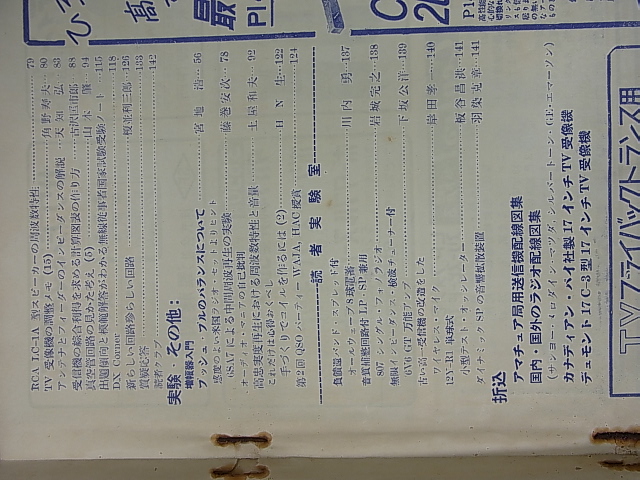 RCA LC-1A 型スピーカーの周波数特性……79
TV 受像機の調整メモ (15)……角野寿夫…80
アンテナとフィーダーのインピーダンスの解説…天知弘…83
受信機の綜合利得を求める計算図表の作り方……古沢匡市郎…88
真空管回路の見かた考え (5)……山本肇…94
出題傾向と模擬解答がわかる無線従事者国家試験受験ノート……115
DX Corner……118
新らしい回路珍らしい回路……榎並利三郎…126
質疑応答……133
読者クラブ……142
実験・その他:
増幅器入門
プッシュ・プルのバランスについて……宮地浩…56
感度のよい米国ラジオ・セットよりヒント
6SA7による中間周波再生の実験……藤巻安次…78
オーディオ・マニアの自己批判
高忠実度再生における周波数特性と音量……土屋和夫…92
これだけは心得おくべし
手づくりでコイルを作るには (2)……H N 生…122
第2回 QSO パーティー WAJA, HAC 授賞……124
読者実験室
負饋還バンド・スプレッド付
オールウェーブ3球電蓄……川内勇…137
音質可変回路付 LP・SP 兼用
807 シングル・フォノラジオ……岩城完之…138
無限インピーダンス検波チューナー付
6V6 6T 万能アンプ……下坂公洋…139
古い高一受信機の改造をした
12Y-R1 単球式ワイヤレス・マイク……岸田孝一…140
小型テスト・オッシレーター……板谷昌洪…141
ダイナミック SP の音響拡散装置……羽染克章…141
折込
アマチュア局用送信機配線図集
国内・国外のラジオ配線図集
(サンヨー・ヒロダイン・マツダ・シルバートーン・GE・エマーソン)
カナディアン・パイ社製 17 インチ TV 受像機
デュモント 17 C-3 型 17 インチ TV 受像機
TVフライバックトランス用